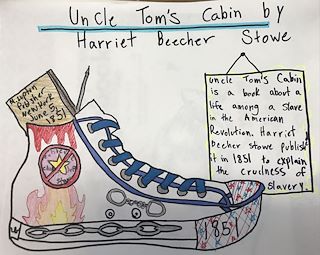 Uncle Tom's Cabin by
Harriet Beecher Stowe
Publisher
New York
June 5
1851
Uncle Tom's Cabin
is a book about a
life among a slave
in the American
Revolution. Harriet
Beecher stowe publish
it in 1851 to explain
the cruelness of
slavery.
1851